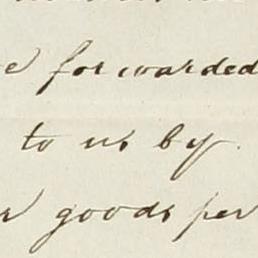 forwarded
to us by
goods per